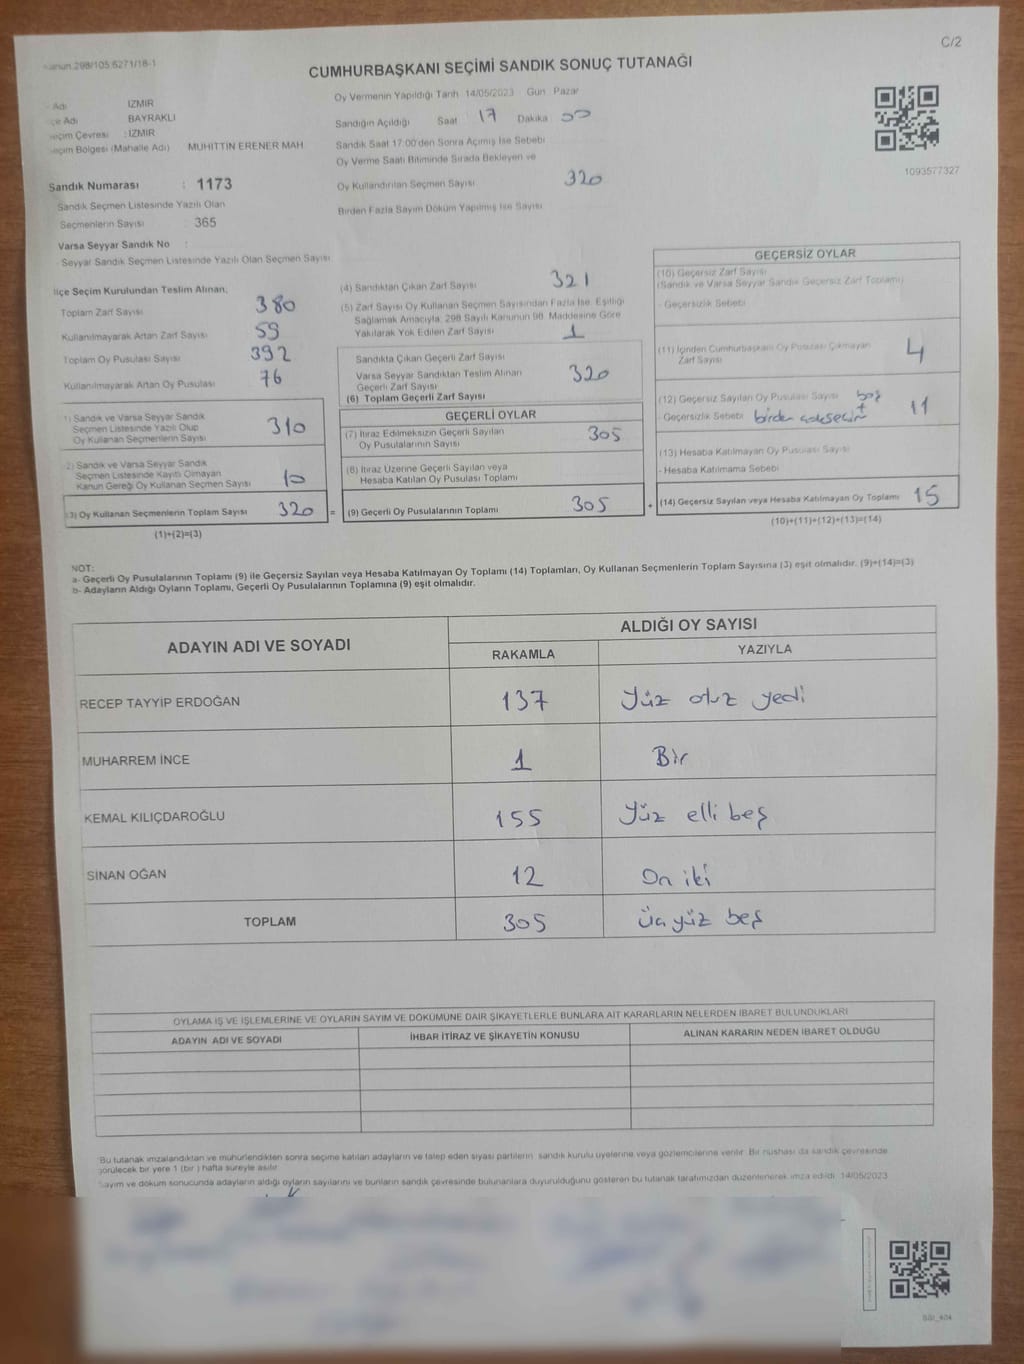 C/2
Kanun 298/105 6271/18-1
CUMHURBAŞKANI SEÇİMİ SANDIK SONUÇ TUTANAĞI
Adı İZMİR
çe Adı BAYRAKLI
eçim Çevresi : İZMİR
eçim Bölgesi (Mahalle Adı) MUHİTTİN ERENER MAH
Sandık Numarası : 1173
Sandık Seçmen Listesinde Yazılı Olan
Seçmenlerin Sayısı 365
Varsa Seyyar Sandık No :
Seyyar Sandık Seçmen Listesinde Yazılı Olan Seçmen Sayısı
Oy Vermenin Yapıldığı Tarih 14/05/2023 Gün Pazar
Sandığın Açıldığı Saat 17 Dakika 00
Sandık Saat 17:00'den Sonra Açmış İse Sebebi
Oy Verme Saati Bitiminde Sırada Bekleyen ve
Oy Kullandırılan Seçmen Sayısı 320
Birden Fazla Sayım Döküm Yapılmış İse Sayısı
1093577327
İlçe Seçim Kurulundan Teslim Alınan,
Toplam Zarf Sayısı 380
Kullanılmayarak Artan Zarf Sayısı 59
Toplam Oy Pusulası Sayısı 392
Kullanılmayarak Artan Oy Pusulası 76
1) Sandık ve Varsa Seyyar Sandık
Seçmen Listesinde Yazılı Olup
Oy Kullanan Seçmenlerin Sayısı 310
2) Sandık ve Varsa Seyyar Sandık
Seçmen Listesinde Kayıtlı Olmayan
Kanun Gereği Oy Kullanan Seçmen Sayısı 10
(3) Oy Kullanan Seçmenlerin Toplam Sayısı 320 =
(1)+(2)=(3)
(4) Sandıktan Çıkan Zarf Sayısı 321
(5) Zarf Sayısı Oy Kullanan Seçmen Sayısından Fazla İse, Eşitliği
Sağlamak Amacıyla, 298 Sayılı Kanunun 98. Maddesine Göre
Yakılarak Yok Edilen Zarf Sayısı 1
Sandıkta Çıkan Geçerli Zarf Sayısı
Varsa Seyyar Sandıktan Teslim Alınan
Geçerli Zarf Sayısı 320
(6) Toplam Geçerli Zarf Sayısı
GEÇERLİ OYLAR
(7) İtiraz Edilmeksizin Geçerli Sayılan
Oy Pusulalarının Sayısı 305
(8) İtiraz Üzerine Geçerli Sayılan veya
Hesaba Katılan Oy Pusulası Toplamı
(9) Geçerli Oy Pusulalarının Toplamı 305 +
GEÇERSİZ OYLAR
(10) Geçersiz Zarf Sayısı
(Sandık ve Varsa Seyyar Sandık Geçersiz Zarf Toplamı)
- Geçersizlik Sebebi
(11) İçinden Cumhurbaşkanı Oy Pusulası Çıkmayan
Zarf Sayısı 4
(12) Geçersiz Sayılan Oy Pusulası Sayısı boş +
- Geçersizlik Sebebi birden çok seçim 11
(13) Hesaba Katılmayan Oy Pusulası Sayısı
- Hesaba Katılmama Sebebi
(14) Geçersiz Sayılan veya Hesaba Katılmayan Oy Toplamı 15
(10)+(11)+(12)+(13)=(14)
NOT:
a- Geçerli Oy Pusulalarının Toplamı (9) ile Geçersiz Sayılan veya Hesaba Katılmayan Oy Toplamı (14) Toplamları, Oy Kullanan Seçmenlerin Toplam Sayısına (3) eşit olmalıdır. (9)+(14)=(3)
b- Adayların Aldığı Oyların Toplamı, Geçerli Oy Pusulalarının Toplamına (9) eşit olmalıdır.
ADAYIN ADI VE SOYADI ALDIĞI OY SAYISI
RAKAMLA YAZIYLA
RECEP TAYYİP ERDOĞAN 137 Yüz otuz yedi
MUHARREM İNCE 1 Bir
KEMAL KILIÇDAROĞLU 155 Yüz elli beş
SİNAN OĞAN 12 On iki
TOPLAM 305 Üç yüz beş
OYLAMA İŞ VE İŞLEMLERİNE VE OYLARIN SAYIM VE DÖKÜMÜNE DAİR ŞİKAYETLERLE BUNLARA AİT KARARLARIN NELERDEN İBARET BULUNDUKLARI
ADAYIN ADI VE SOYADI İHBAR İTİRAZ VE ŞİKAYETİN KONUSU ALINAN KARARIN NEDEN İBARET OLDUĞU
Bu tutanak imzalandıktan ve mühürlendikten sonra seçime katılan adayların ve talep eden siyasi partilerin sandık kurulu üyelerine veya gözlemcilerine verilir. Bir nüshası da sandık çevresinde
görülecek bir yere 1 (bir) hafta süreyle asılır.
Sayım ve döküm sonucunda adayların aldığı oyların sayılarını ve bunların sandık çevresinde bulunanlara duyurulduğunu gösteren bu tutanak tarafımızdan düzenlenerek imza edildi. 14/05/2023